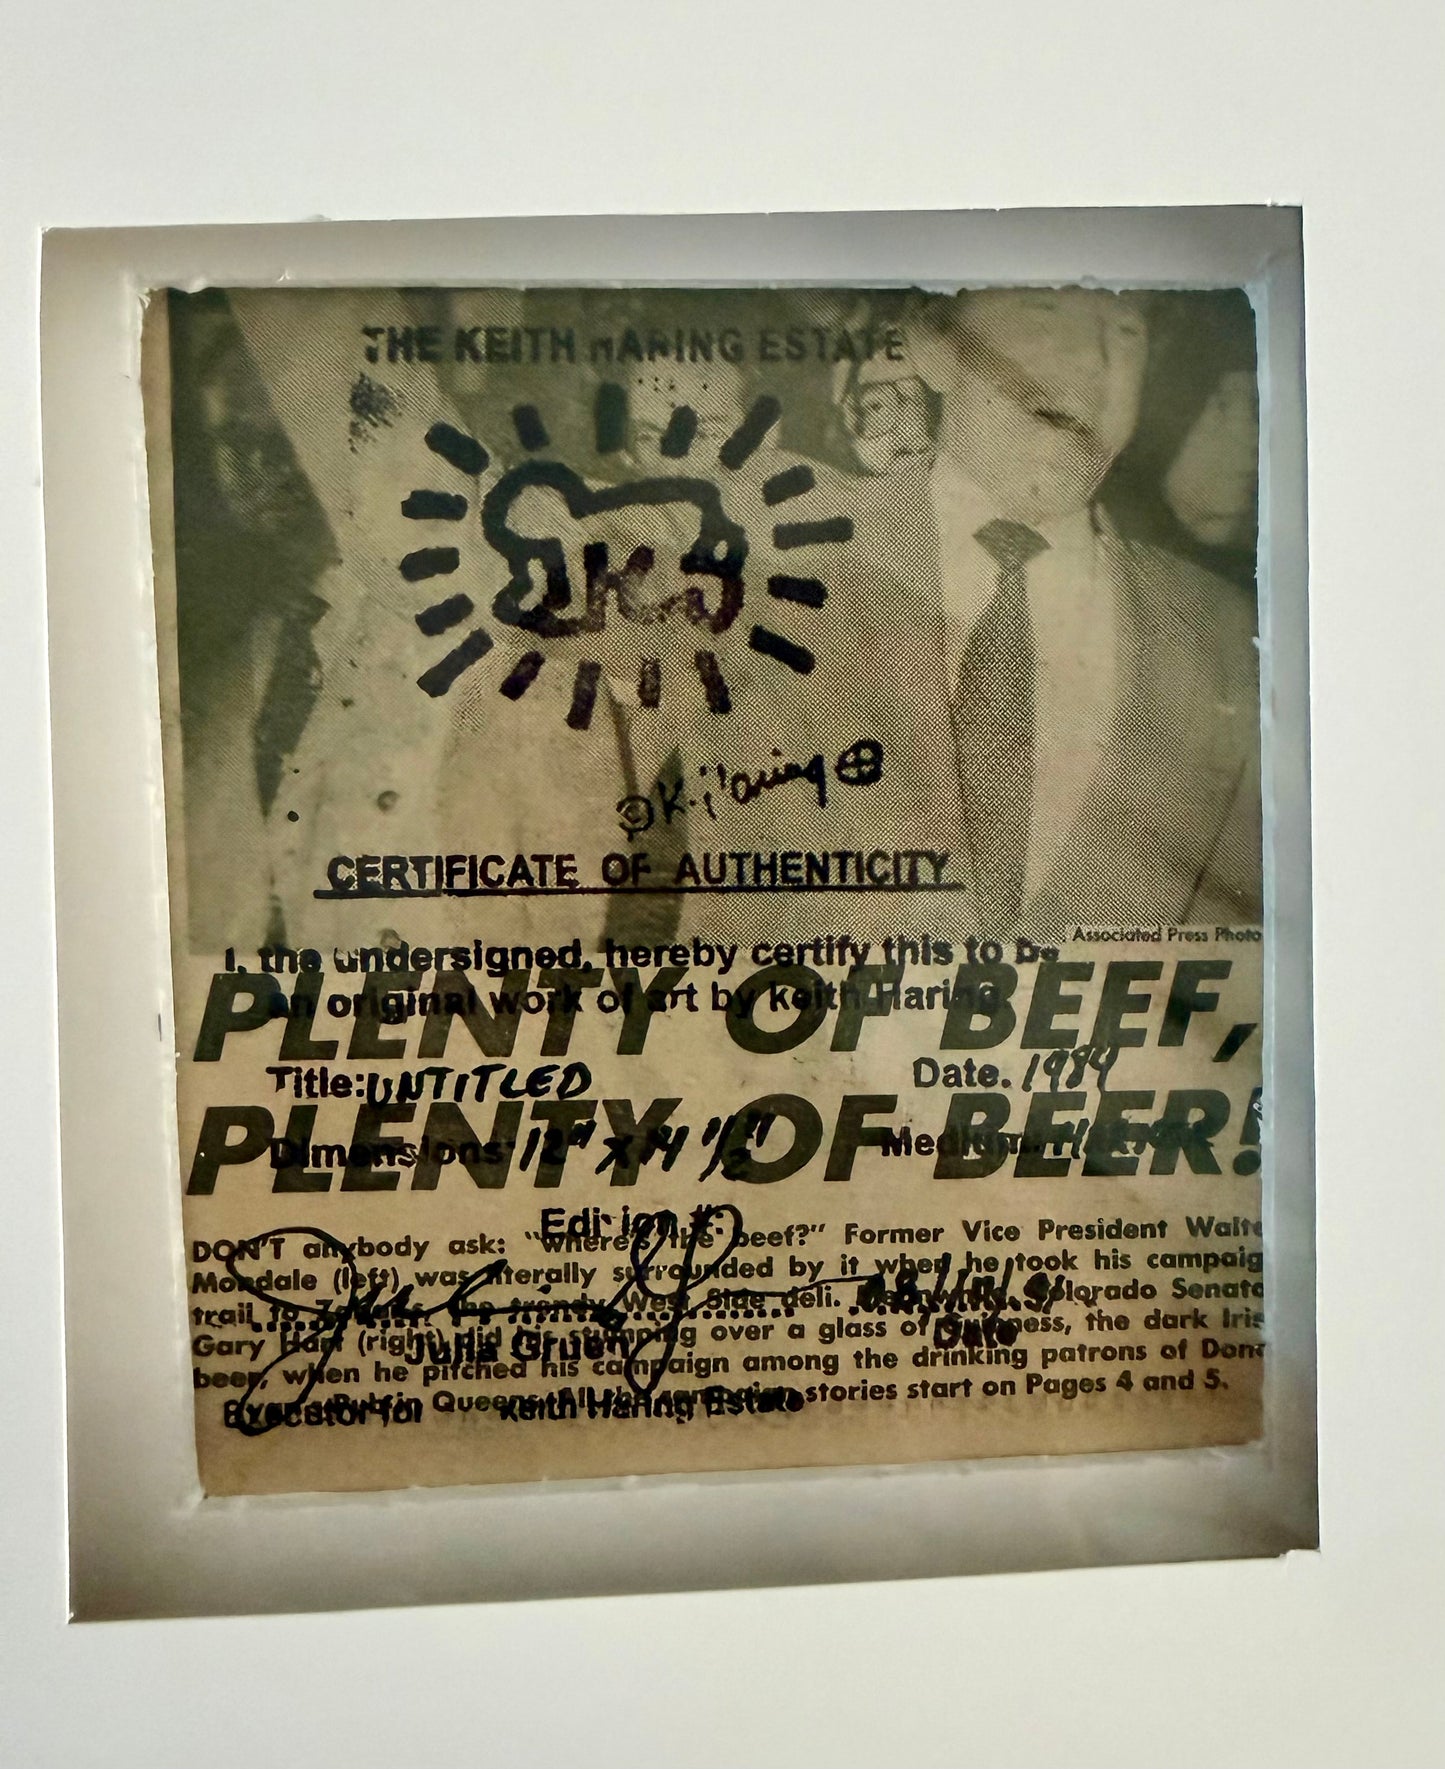 THE KEITH HARING ESTATE
© K. Haring ⊕
CERTIFICATE OF AUTHENTICITY
Associated Press Photo
I, the undersigned, hereby certify this to be
an original work of art by keith Haring.
PLENTY OF BEEF,
Title: UNTITLED Date. 1984
PLENTY OF BEER!
Dimensions: 12" X 14 1/2" Medium:
Edition #:
DON'T anybody ask: "Where's the beef?" Former Vice President Walte
Mondale (left) was literally surrounded by it when he took his campaig
trail to the trendy West Side deli. Colorado Senato
Gary Hart (right) did his stumping over a glass of Guinness, the dark Iris
Julia Gruen Date
beer, when he pitched his campaign among the drinking patrons of
Pub in Queens. All the campaign stories start on Pages 4 and 5.
Executor for Keith Haring Estate